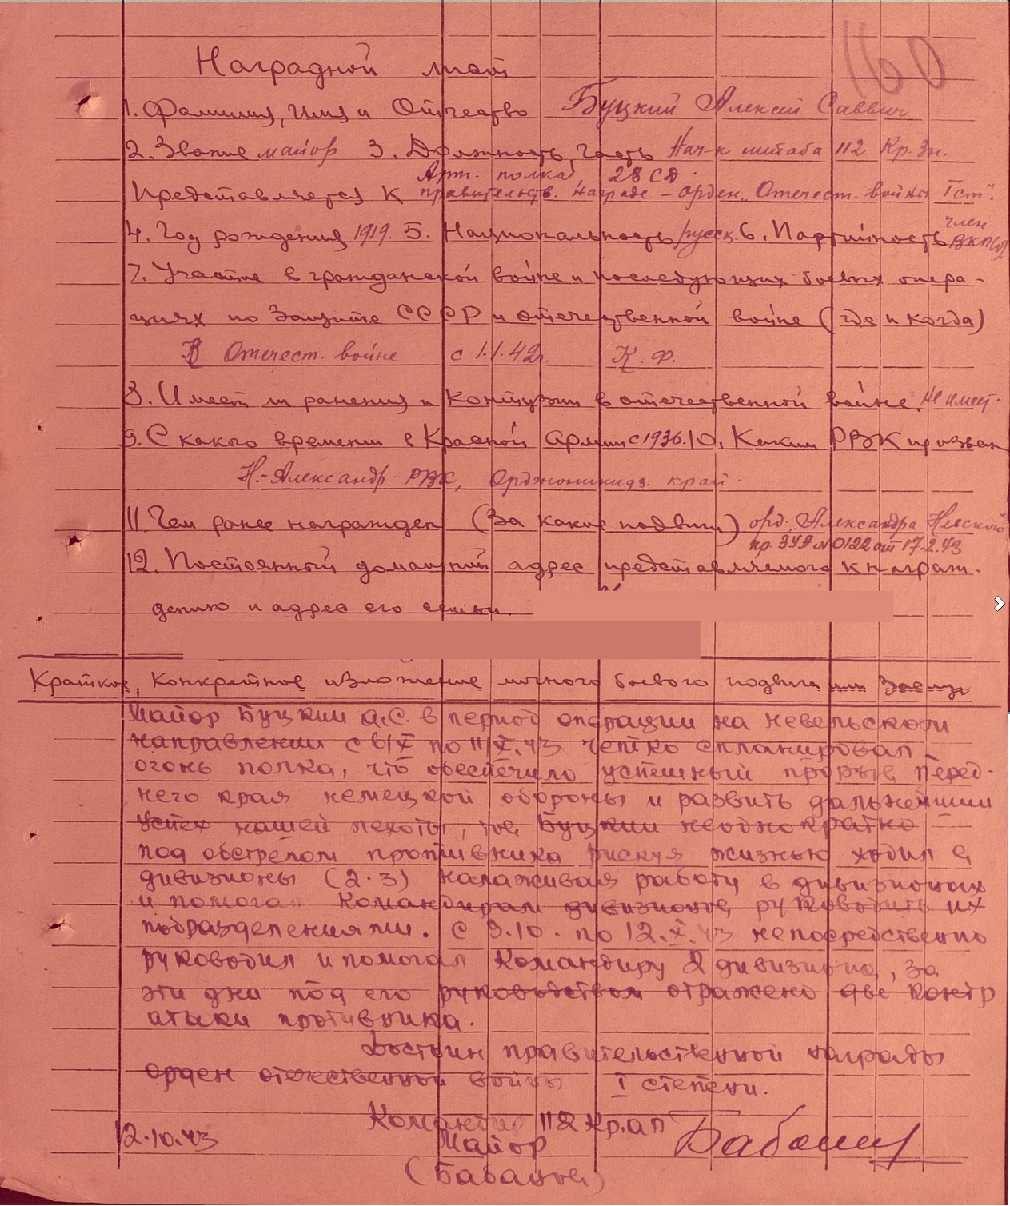 160
Наградной лист
1. Фамилия, Имя и Отчество Буцкий Алексей Саввич
2. Звание майор 3. Должность, часть Нач-к штаба 112 Кр. Зн.
Арт. полка 28 СД.
Представляется к правительств. награде – орден „Отечест. войны I ст."
4. Год рождения 1919. 5. Национальность русск. 6. Партийность член ВКП(б)
7. Участие в гражданской войне и последующих боевых опера-
циях по защите СССР и отечественной войне (где и когда)
В Отечест. войне с 1.1.42г. К. Ф.
8. Имеет ли ранения и контузии в отечественной войне. Не имеет.
9. С какого времени в Красной Армии с 1936. 10. Каким РВК призван
Н.-Александр РВК, Орджоникидз. край.
11. Чем ранее награжден (За какие подвиги) орд. Александра Невского
пр. 3УА №0122 от 17.2.43
12. Постоянный домашний адрес представляемого к награж-
дению и адрес его семьи.
Краткое, конкретное изложение личного боевого подвига или заслуг
Майор Буцкий А.С. в период операции на Невельском
направлении с 6/X по 11/X.43 четко спланировал
огонь полка, что обеспечило успешный прорыв перед-
него края немецкой обороны и развить дальнейший
успех нашей пехоты, тов. Буцкий неоднократно
под обстрелом противника рискуя жизнью ходил в
дивизионы (2.3) налаживая работу в дивизионах
и помогая командирам дивизионов руководить их
подразделениями. С 9.10. по 12.X.43 непосредственно
руководил и помогал командиру 2 дивизиона, за
эти дни под его руководством отражено две контр
атаки противника.
Достоин правительственной награды
орден отечественной войны I степени.
Командир 112 Кр. ап
12.10.43 Майор
(Бабанов)